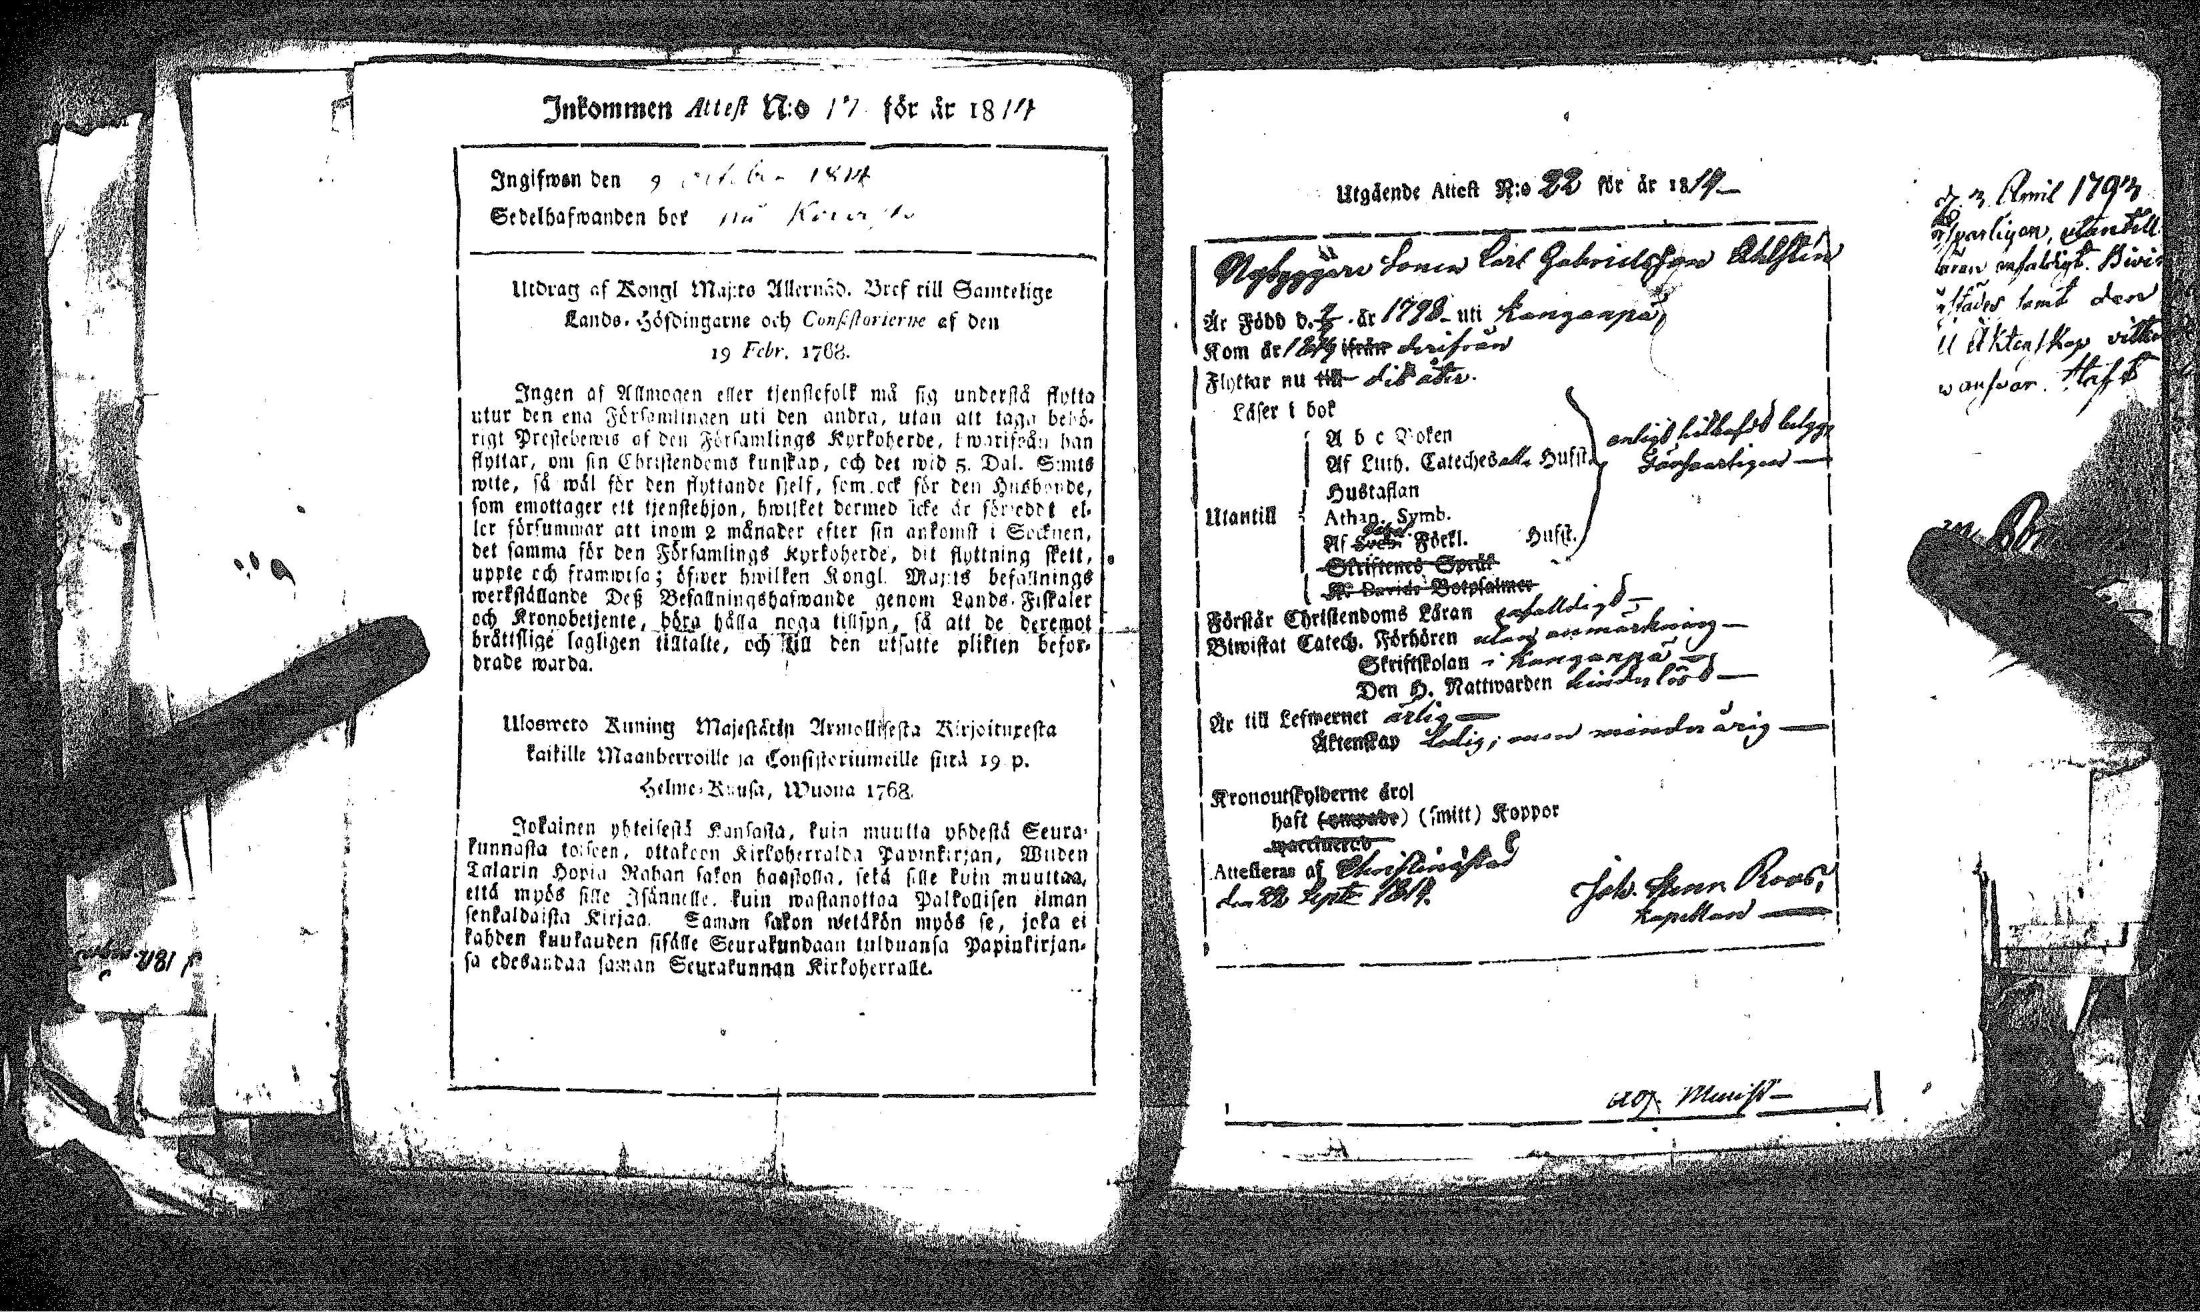 Inkommen Attest N:o 17 för år 1814
Ingifwen den 9 october 1814
Sedelhafwanden bor
Utdrag af Kongl Maj:ts Allernåd. Bref till Samtelige
Lands-Höfdingarne och Consistorierne af den
19 Febr. 1768.
Ingen af Allmogen eller tjenstefolk må sig understå flytta
utur den ena Församlingen uti den andra, utan att taga behö-
rigt Prestebewis af den Församlings Kyrkoherde, hwarifrån han
flyttar, om sin Christendoms kunskap, och det wid 5. Dal. S:mts
wite, så wäl för den flyttande sjelf, som ock för den Husbonde,
som emottager ett tjenstehjon, hwilket dermed icke är förseddt el-
ler försummar att inom 2 månader efter sin ankomst i Socknen,
det samma för den Församlings Kyrkoherde, dit flyttning skett,
uppte och framwisa; öfwer hwilken Kongl. Maj:ts befallnings
werkställande Deß Befallningshafwande genom Lands-Fiskaler
och Kronobetjente, böra hålla noga tillsyn, så att de deremot
bråttslige lagligen tilltalte, och till den utsatte plikten befor-
drade warda.
Ulosweto Kuning Majestätin Armollisesta Kirjoituxesta
kaikille Maanherroille ja Consistoriumeille siitä 19 p.
Helme-Kuusa, Wuona 1768.
Jokainen yhteisestä Kansasta, kuin muutta yhdestä Seura-
kunnasta toiseen, ottakoon Kirkoherralda Papinkirjan, Wiiden
Talarin Hopia Rahan sakon haastolla, sekä sille kuin muuttaa,
että myös sille Isännelle, kuin wastanottaa Palkollisen ilman
senkaldaista Kirjaa. Saman sakon wetäkön myös se, joka ei
kahden kuukauden sisälle Seurakundaan tulduansa Papinkirjan-
sa edesandaa saman Seurakunnan Kirkoherralle.
Utgående Attest N:o 22 för år 1814
Nybyggare Sonen Carl Gabrielsson Ahlsten
Är Född d. år 1798 uti Kanganpä
Kom år 1814 ifrån derifrån
Flyttar nu till dit åter.
Läser i bok
A b c Boken
Af Luth. Cateches alla Hufst.
enligt
Hustaflan
Utantill
Athan. Symb.
Af Förkl. Hufst.
Skriftenes Språk
K. Davids Botpsalmer
Förstår Christendoms Läran enfalldigt
Biwistat Catech. Förhören utan anmärkning
Skriftskolan i Kanganpä
Den H. Nattwarden
Är till Lefwernet ärlig
Äktenskap Ledig, men minderårig
Kronoutskylderne årol
haft (ympade) (smitt) Koppor
vaccinerad
Attesteras af Christinestad
den 22 Septr 1814.
Joh. Roos,
Kapellan
d. 3 April 1793